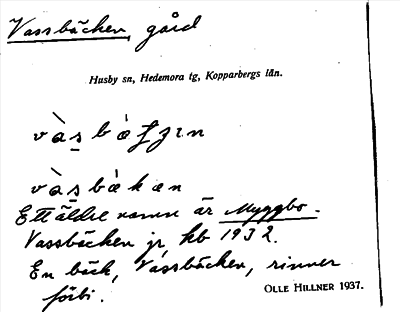 Vassbäcken, gård
Husby sn, Hedemora tg, Kopparbergs län.
vàs̠bàkæn
Ett äldre namn är Myggbo.
Vassbäcken jr kb 1932.
En bäck, Vassbäcken, rinner
förbi.
OLLE HILLNER 1937.